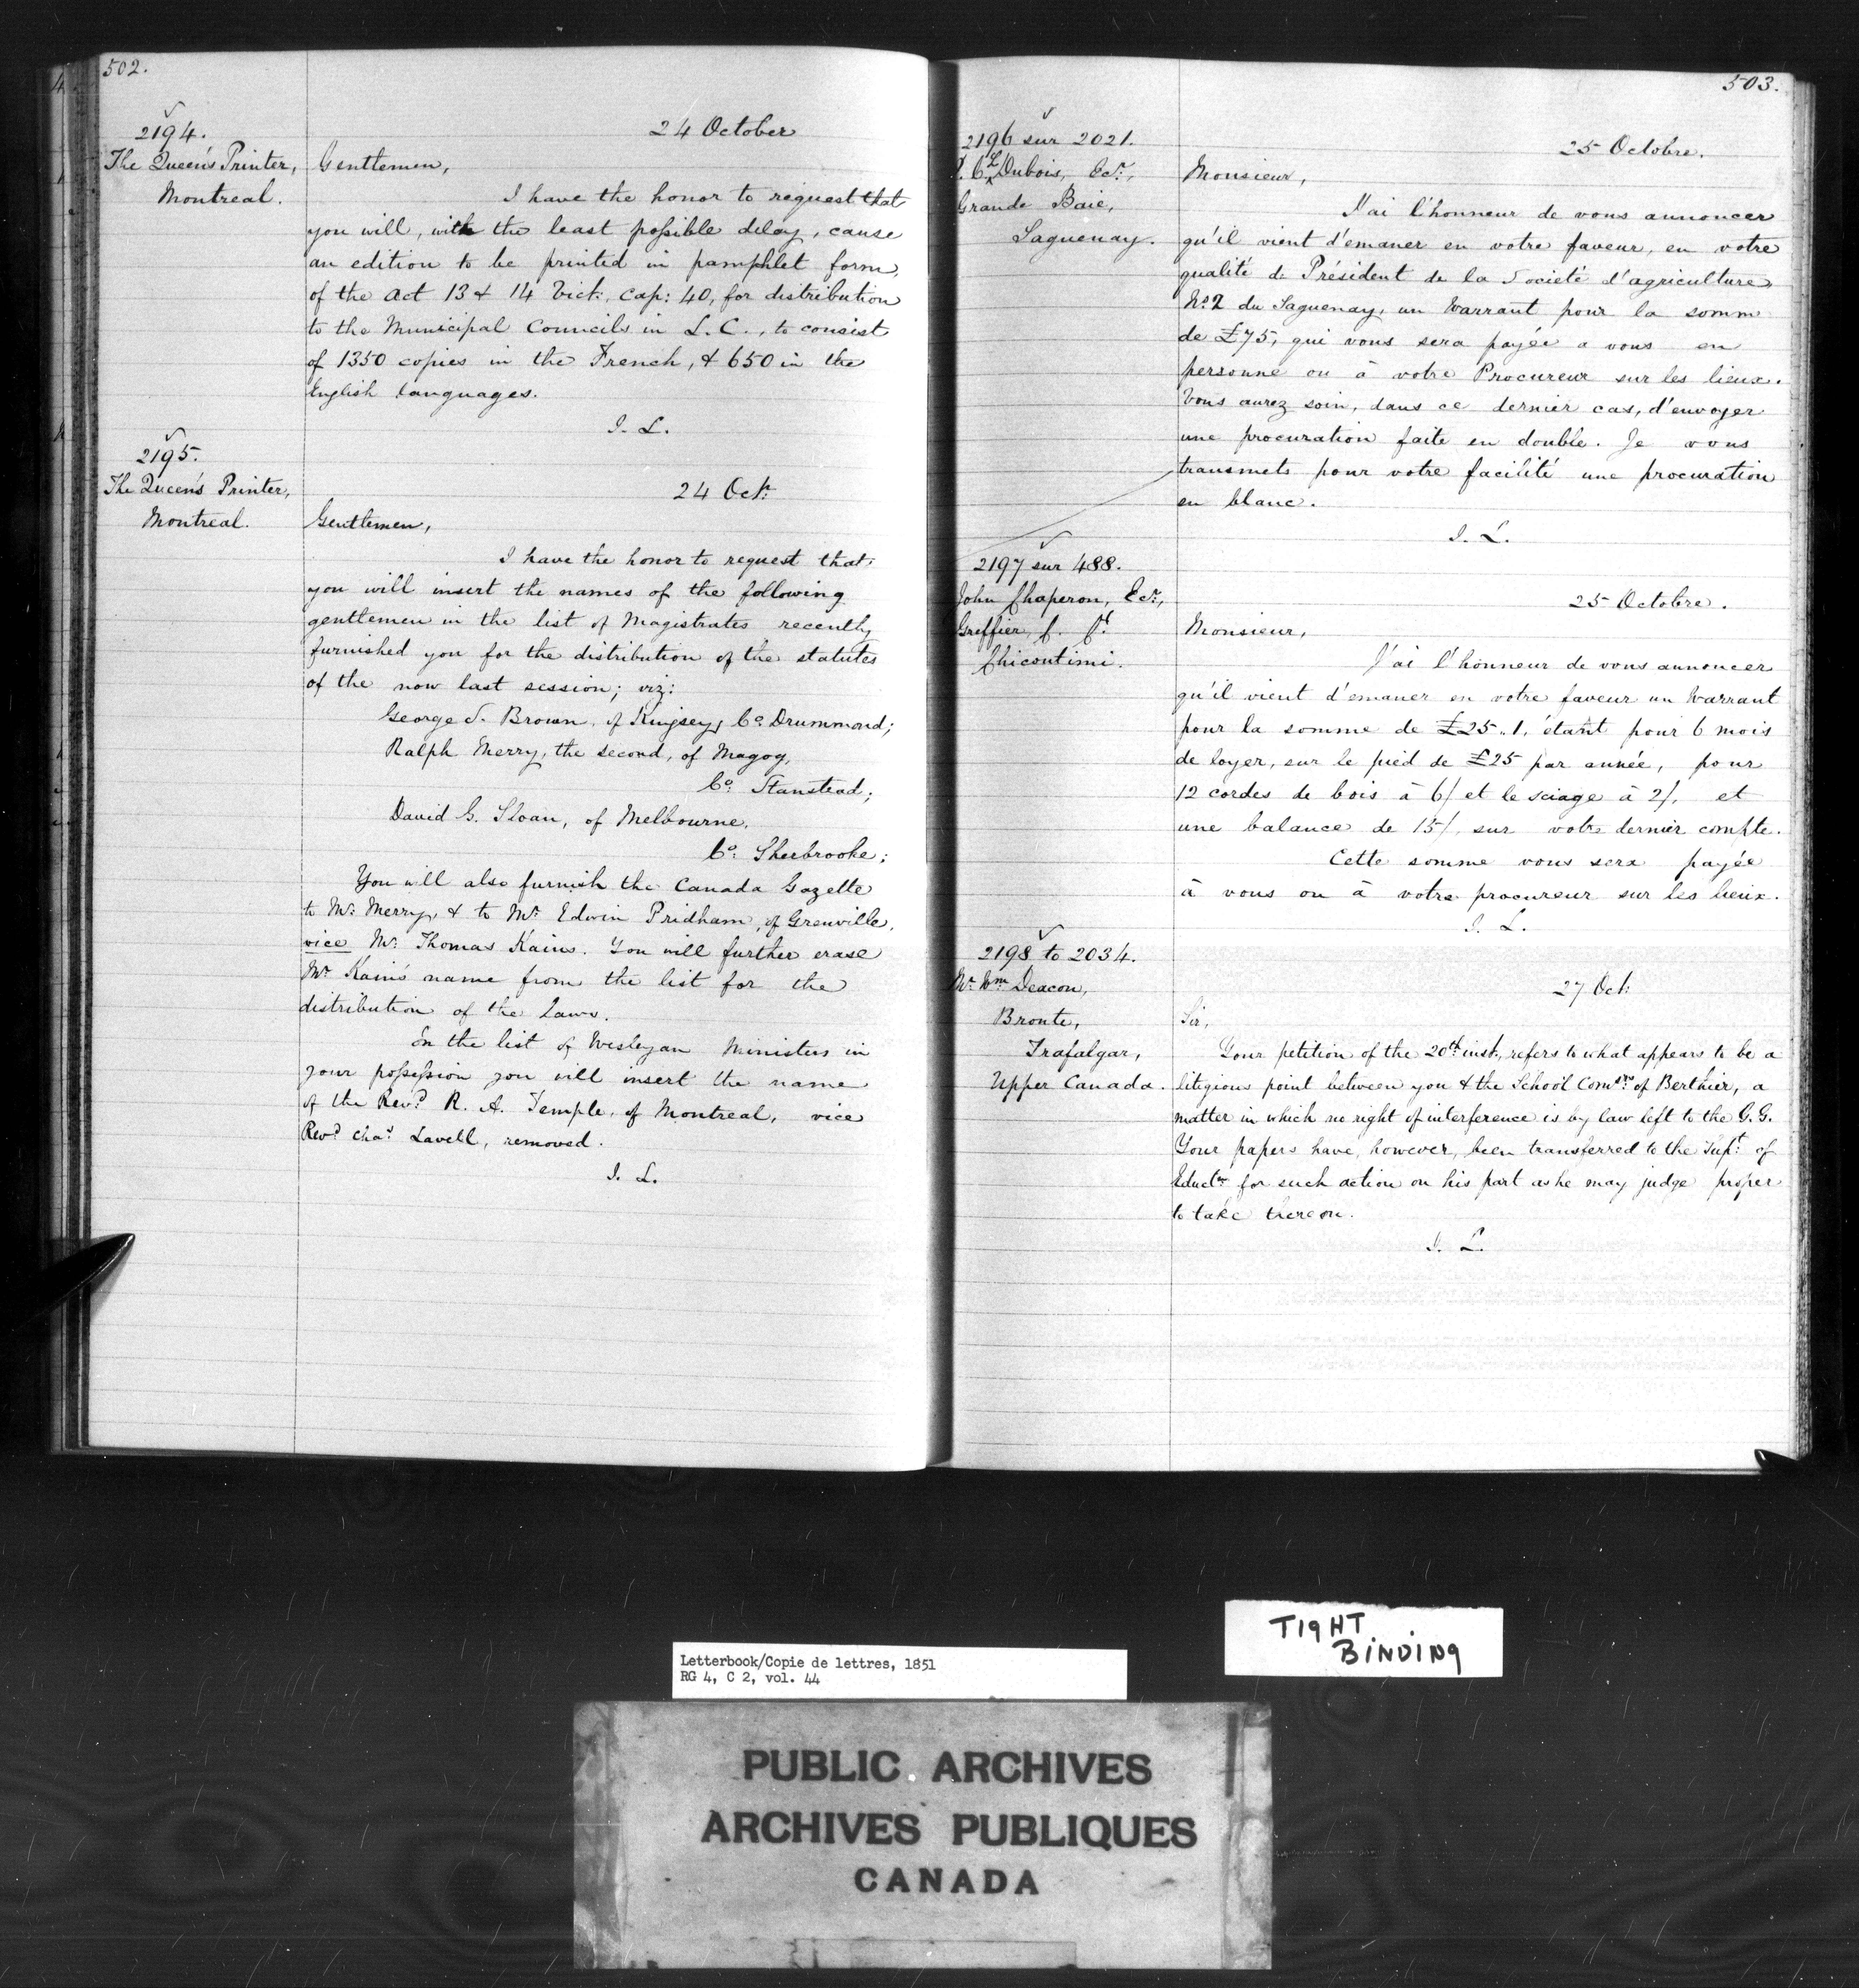 502.
2194.
24 October
The Queen's Printer,
Montreal.
Gentlemen,
I have the honor to request that
you will, with the least possible delay, cause
an edition to be printed in pamphlet form,
of the Act 13 & 14 Vict:, cap: 40, for distribution
to the Municipal Councils in L. C., to consist
of 1350 copies in the French, & 650 in the
English languages.
I. L.
2195.
The Queen's Printer,
Montreal.
24 Oct:
Gentlemen,
I have the honor to request that
you will insert the names of the following
gentlemen in the list of Magistrates recently
furnished you for the distribution of the statutes
of the now last session; viz:
George S. Brown, of Kingsey, Co. Drummond;
Ralph Merry, the second, of Magog,
Co: Stanstead;
David G. Sloan, of Melbourne,
Co: Sherbrooke;
You will also furnish the Canada Gazette
to Mr. Merry, & to Mr. Edwin Pridham, of Grenville,
vice Mr. Thomas Kains. You will further erase
Mr. Kains' name from the list for the
distribution of the Laws.
In the list of Wesleyan Ministers in
your possession you will insert the name
of the Revd. R. A. Temple, of Montreal, vice
Revd. Chas. Lavell, removed.
I. L.
503.
2196 sur 2021.
25 Octobre.
Dubois, Ecr.,
Grande Baie,
Saguenay.
Monsieur,
J'ai l'honneur de vous annoncer
qu'il vient d'emaner en votre faveur, en votre
qualité de Président de la Societé d'agriculture
No. 2 du Saguenay, un Warrant pour la somme
de £75, qui vous sera payée a vous en
personne ou à votre Procureur sur les lieux.
Vous aurez soin, dans ce dernier cas, d'envoyer
une procuration faite en double. Je vous
transmets pour votre facilité une procuration
en blanc.
I. L.
2197 sur 488.
John Chaperon, Ecr.,
Greffier, C. Ct.
Chicoutimi.
25 Octobre.
Monsieur,
J'ai l'honneur de vous annoncer
qu'il vient d'emaner en votre faveur un Warrant
pour la somme de £25..1, étant pour 6 mois
de loyer, sur le pied de £25 par année, pour
12 cordes de bois à 6/ et le sciage à 2/, et
une balance de 15/ sur votre dernier compte.
Cette somme vous sera payée
à vous ou à votre procureur sur les lieux.
I. L.
2198 to 2034.
Mr. Wm. Deacon,
Bronte,
Trafalgar,
Upper Canada.
27 Oct:
Sir,
Your petition of the 20th inst., refers to what appears to be a
litigious point between you & the School Comsrs. of Berthier, a
matter in which no right of interference is by law left to the G. G.
Your papers have, however, been transferred to the Supt. of
Eductn. for such action on his part as he may judge proper
to take thereon.
I. L.
TIGHT
BINDING
Letterbook/Copie de lettres, 1851
RG 4, C 2, vol. 44
PUBLIC ARCHIVES
ARCHIVES PUBLIQUES
CANADA